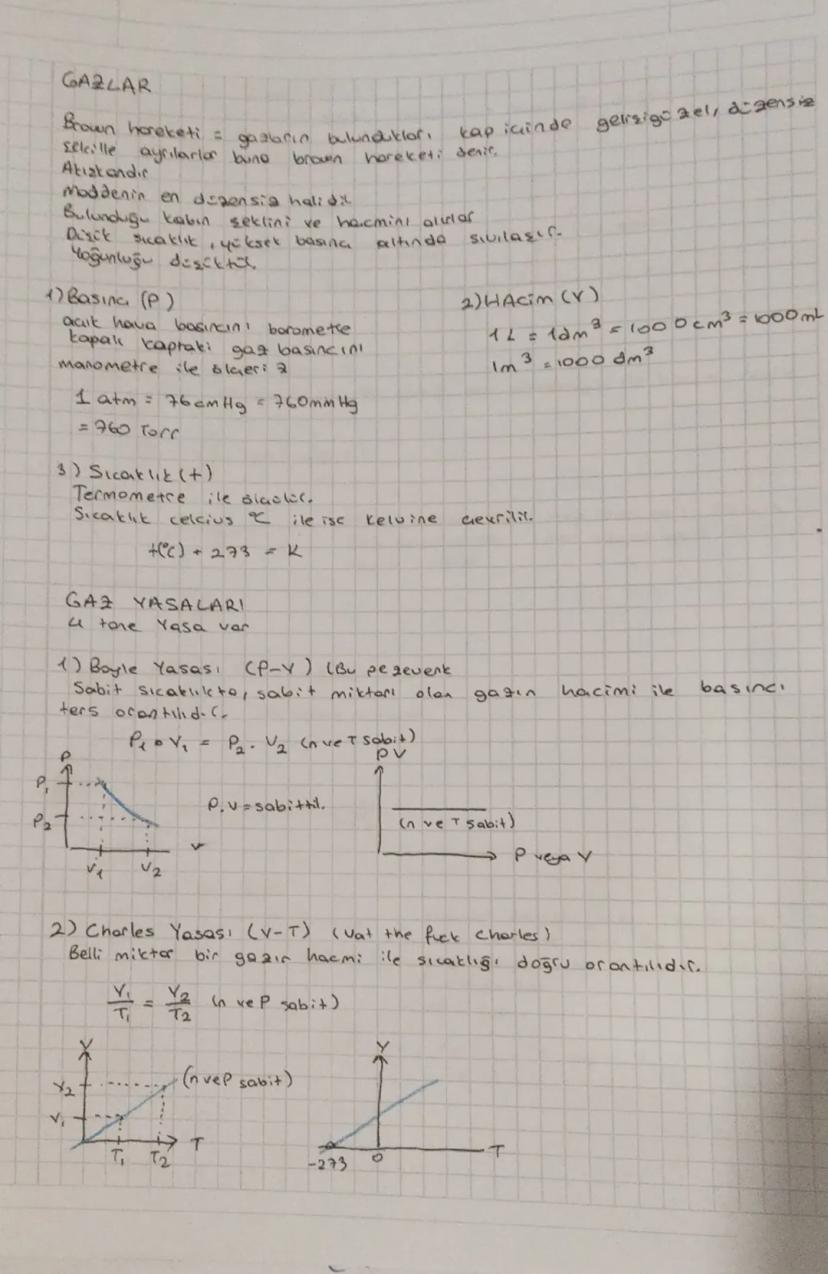 GAZLAR
Brown hareketi = gazların bulundukları kap içinde gelişigüzel, düzensiz
şekille ayrılarlar buna brown hareketi denir.
Akışkandır
Maddenin en düzensiz halidir
Bulunduğu kabın şeklini ve hacmini alırlar
Düşük sıcaklık, yüksek basınç altında sıvılaşır.
Yoğunluğu düşüktür.
1) Basınç (P)
açık hava basıncını barometre
kapalı kaptaki gaz basıncını
manometre ile ölçeriz
1 atm = 76 cmHg = 760mmHg
= 760 Torr
2) HAcim (V)
1 L = 1dm³ = 1000cm³ = 1000mL
1m³ = 1000 dm³
3) Sıcaklık (t)
Termometre ile ölçülür.
Sıcaklık celcius °C ile ise kelvine çevrilir.
t(°C) + 273 = K
GAZ YASALARI
4 tane Yasa var
1) Boyle Yasası (P-V) (Bu pezevenk
Sabit sıcaklıkta, sabit miktarı olan gazın hacimi ile basıncı
ters orantılıdır.
P₁ • V₁ = P₂ . V₂ (n ve T sabit)
P
P₁
P₂
V₁ V₂
V
P.V = sabittir.
PV
(n ve T sabit)
P veya V
2) Charles Yasası (V-T) (vat the fuck Charles)
Belli miktar bir gazın hacmi ile sıcaklığı doğru orantılıdır.
V₁/T₁ = V₂/T₂ (n ve P sabit)
V
V₂
V₁
(n ve P sabit)
T₁ T₂
T
V
-273 0
T